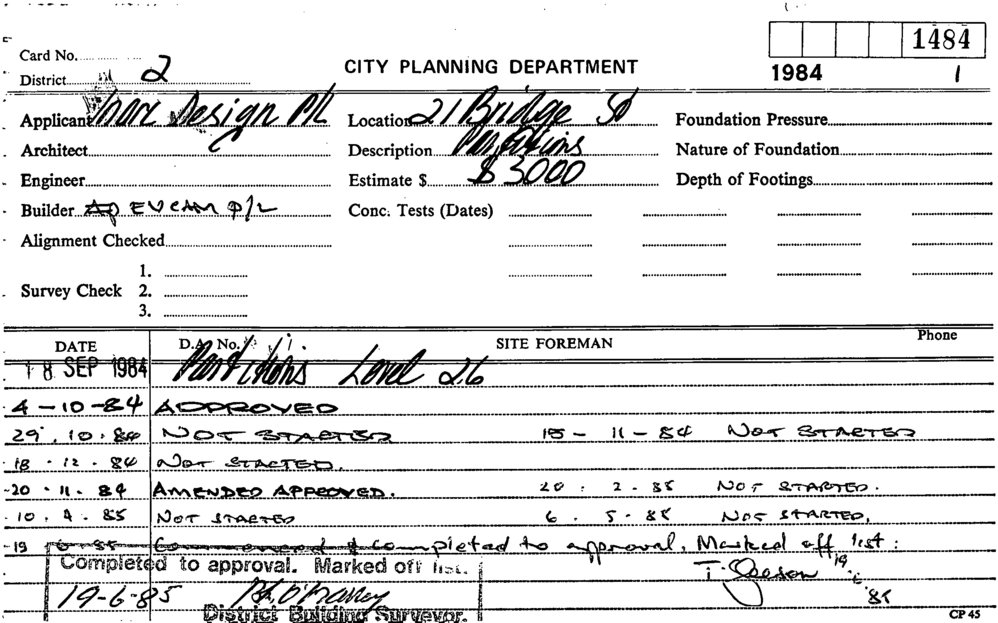 1484
Card No.
District 2
CITY PLANNING DEPARTMENT
1984 1
Applicant Design P/L
Location 21 Bridge St
Foundation Pressure
Architect
Description Partitions
Nature of Foundation
Engineer
Estimate $ $ 3000
Depth of Footings
Builder EVCAM P/L
Conc. Tests (Dates)
Alignment Checked
1.
Survey Check 2.
3.
DATE D.A. No. SITE FOREMAN Phone
18 SEP 1984 Partitions Level 26
4-10-84 APPROVED
29.10.84 NOT STARTED 15-11-84 NOT STARTED
18.12.84 NOT STARTED.
20.11.84 AMENDED APPROVED. 20.2.85 NOT STARTED.
10.4.85 NOT STARTED 6.5.85 NOT STARTED.
19 6-85 Commenced & completed to approval. Marked off list:
Completed to approval. Marked off list.
19.6.85
19-6-85
District Building Surveyor.
CP 45